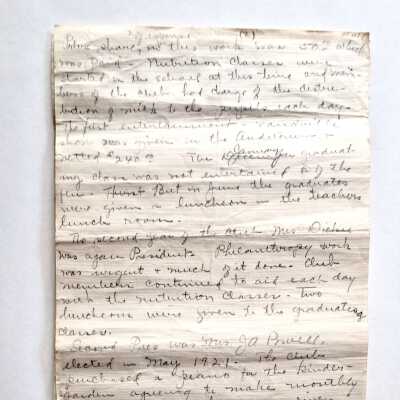 (2)
share in this work was 50.00 which
was paid - Nutrition Classes were
started in the school at this time and mem-
bers of the had charge of the distri-
bution of milk to the pupils each day.
The first entertainment a
show was given in the Auditorium &
netted $240.00 The January graduat-
ing class was not entertained by the
But in June the graduates
were given a luncheon in the teachers
lunch room.
The second year of the Mrs.
was again President. Philanthropy work
was urgent & much of it done. Club
members continued to aid each day
with the Nutrition Classes. Two
luncheons were given to the graduating
classes.
Second Pres was Mrs. J A Powell
elected in May 1921 - The Club
purchased a piano for the Kinder-
garden agreeing to make monthly